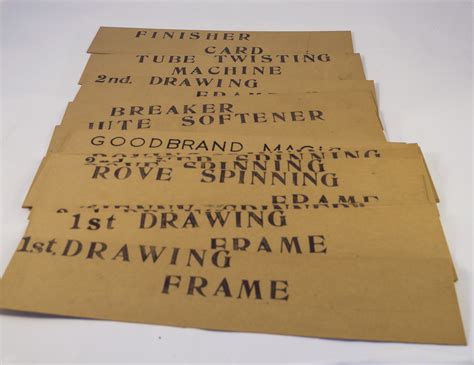 FINISHER
CARD
TUBE TWISTING
MACHINE
2nd. DRAWING
FRAME
BREAKER
JUTE SOFTENER
GOODBRAND MAGIC
SPINNING
ROVE SPINNING
FRAME
1st DRAWING
FRAME
1st. DRAWING
FRAME